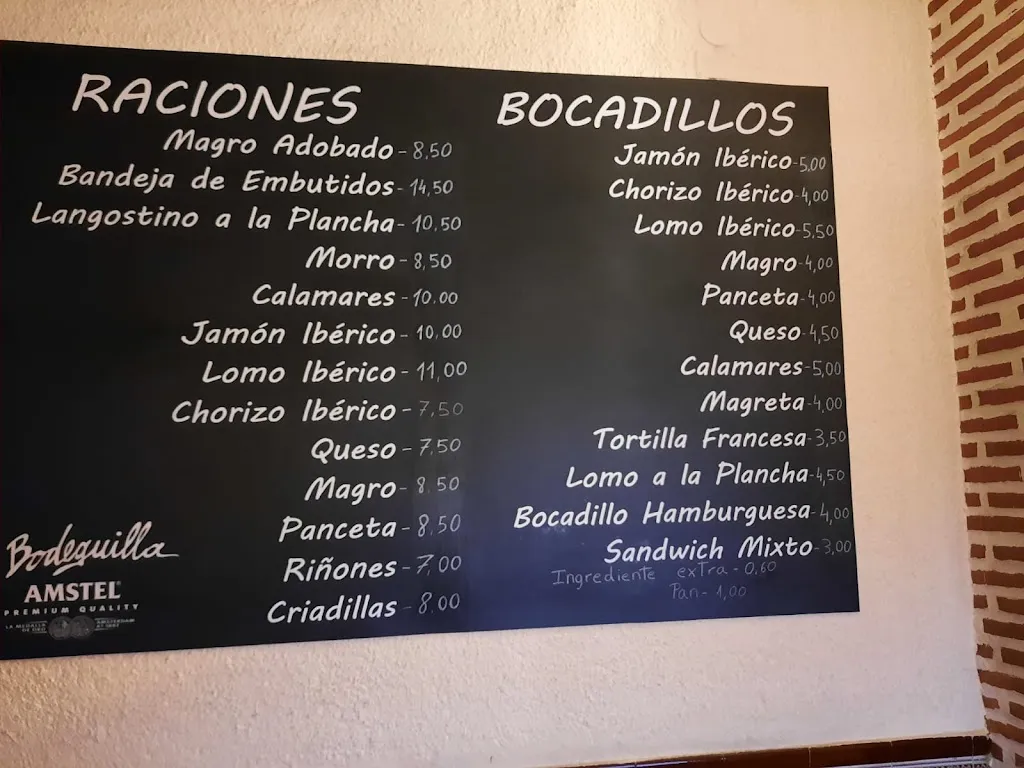 RACIONES
Magro Adobado - 8,50
Bandeja de Embutidos - 14,50
Langostino a la Plancha - 10,50
Morro - 8,50
Calamares - 10,00
Jamón Ibérico - 10,00
Lomo Ibérico - 11,00
Chorizo Ibérico - 7,50
Queso - 7,50
Magro - 8,50
Panceta - 8,50
Riñones - 7,00
Criadillas - 8,00
BOCADILLOS
Jamón Ibérico - 5,00
Chorizo Ibérico - 4,00
Lomo Ibérico - 5,50
Magro - 4,00
Panceta - 4,00
Queso - 4,50
Calamares - 5,00
Magreta - 4,00
Tortilla Francesa - 3,50
Lomo a la Plancha - 4,50
Bocadillo Hamburguesa - 4,00
Sandwich Mixto - 3,00
Ingrediente extra - 0,60
Pan - 1,00
Bodeguilla
AMSTEL
PREMIUM QUALITY
LA MEDALLA
DE ORO
AMSTERDAM